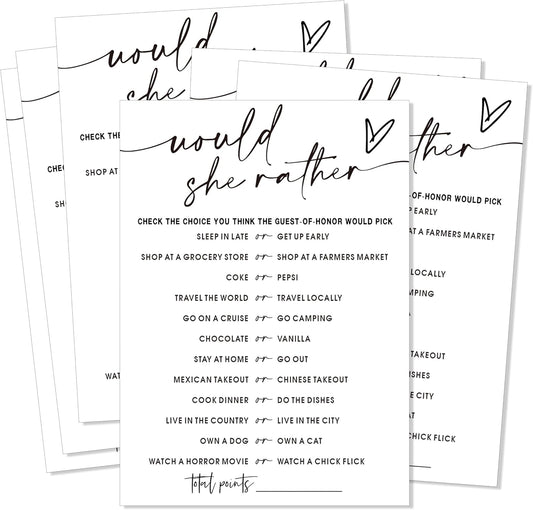 would
she rather
CHECK THE CHOICE YOU THINK THE GUEST-OF-HONOR WOULD PICK
SLEEP IN LATE or GET UP EARLY
SHOP AT A GROCERY STORE or SHOP AT A FARMERS MARKET
COKE or PEPSI
TRAVEL THE WORLD or TRAVEL LOCALLY
GO ON A CRUISE or GO CAMPING
CHOCOLATE or VANILLA
STAY AT HOME or GO OUT
MEXICAN TAKEOUT or CHINESE TAKEOUT
COOK DINNER or DO THE DISHES
LIVE IN THE COUNTRY or LIVE IN THE CITY
OWN A DOG or OWN A CAT
WATCH A HORROR MOVIE or WATCH A CHICK FLICK
total points
would
she
CHECK THE
SHOP AT A
WAT
ther
OF-HONOR WOULD PICK
EARLY
AT A FARMERS MARKET
LOCALLY
MPING
TAKEOUT
ISHES
E CITY
AT
CHICK FLICK